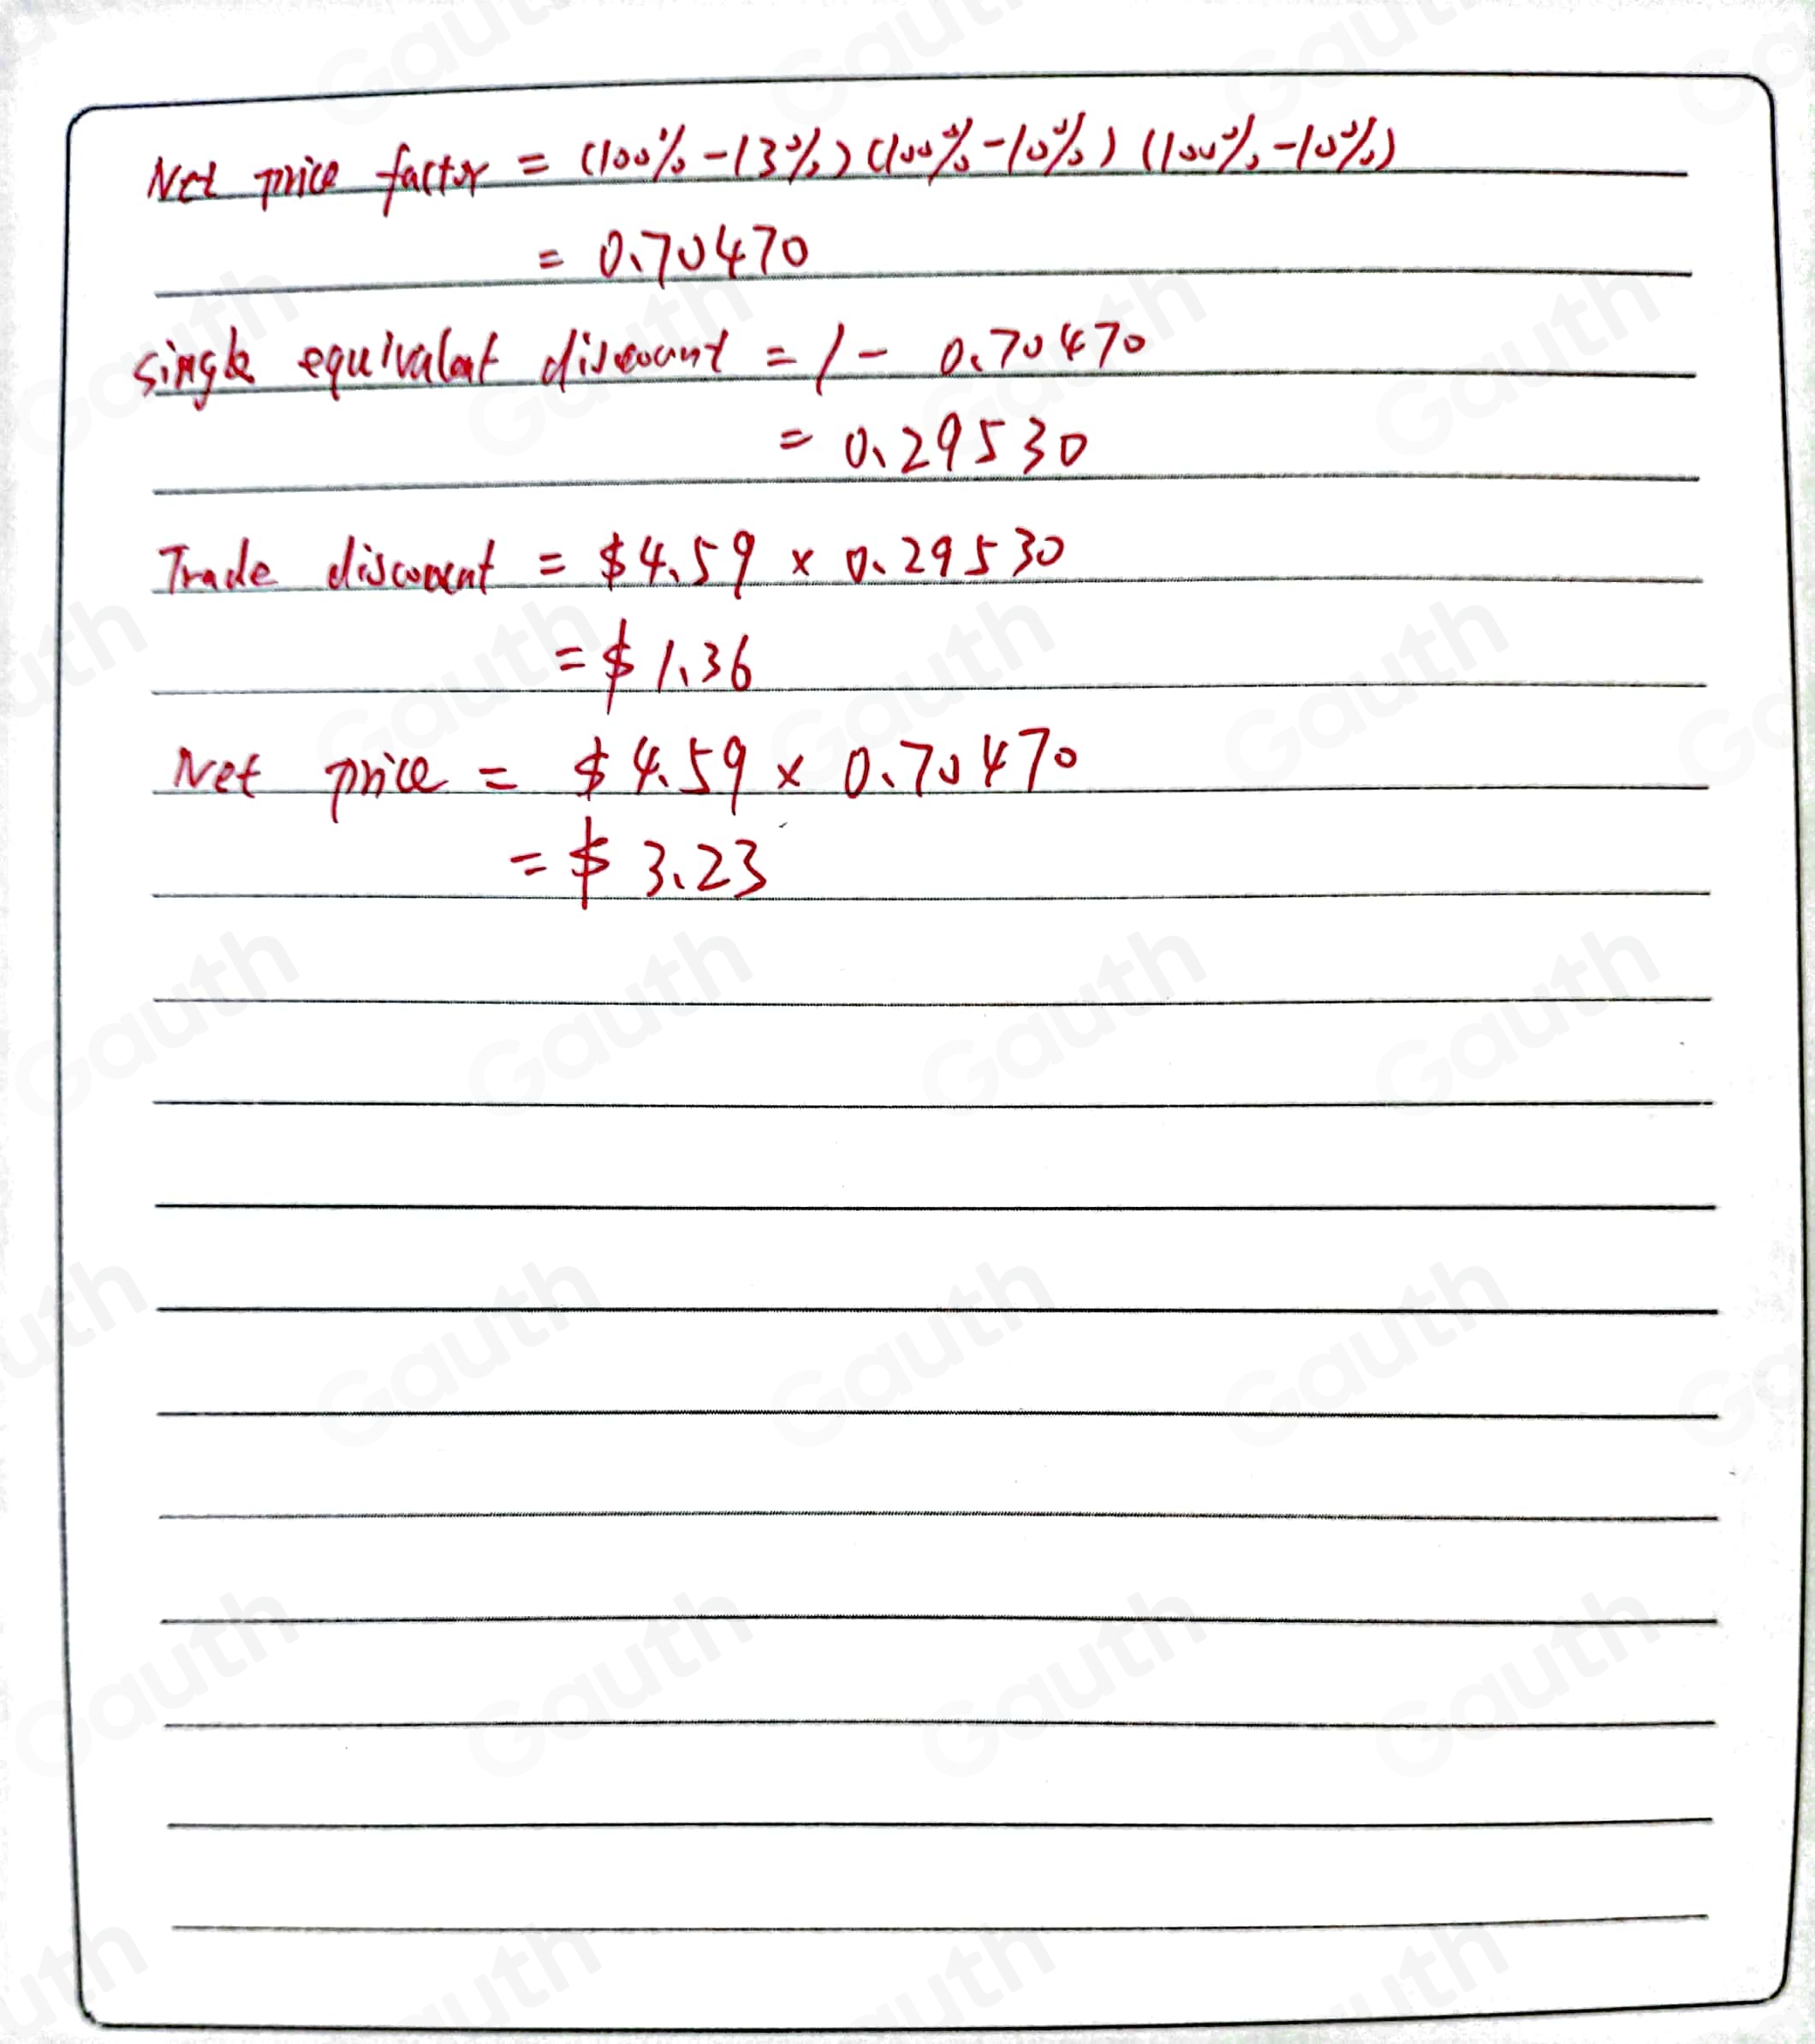 Net price factor = (100% - 13%) (100% - 10%) (100% - 10%)
= 0.70470
single equivalent discount = 1 - 0.70470
= 0.29530
Trade discount = $4.59 × 0.29530
= $ 1.36
Net price = $ 4.59 × 0.70470
= $ 3.23